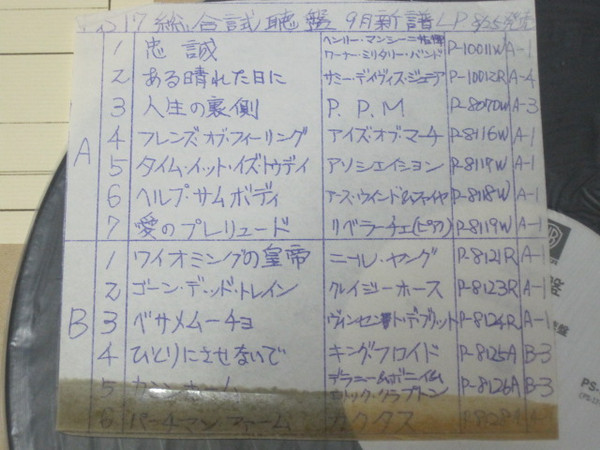 総合試聴盤 9月新譜 LP
A
1 忠誠 ヘンリー・マンシーニ指揮 ワーナー・ミリタリー・バンド P-10011W A-1
2 ある晴れた日に サミー・デイヴィス・ジュニア P-10012R A-4
3 人生の裏側 P.P.M P-8070W A-3
4 フレンズ・オブ・フィーリング アイズ・オブ・マーチ P-8116W A-1
5 タイム・イット・イズ・トゥデイ アソシエイション P-8119W A-1
6 ヘルプ・サムボディ アース・ウインド&ファイヤ P-8118W A-1
7 愛のプレリュード リベラーチェ(ピアノ) P-8119W A-1
B
1 ワイオミングの皇帝 ニール・ヤング P-8121R A-1
2 ゴーン・デッド・トレイン クレイジーホース P-8123R A-1
3 ベサメムーチョ P-8124R A-1
4 ひとりにさせないで キングフロイド P-8125A B-3
5 デラニー&ボニイ エリック・クラプトン P-8126A B-3
6 パーチマンファーム カクタス
PS-